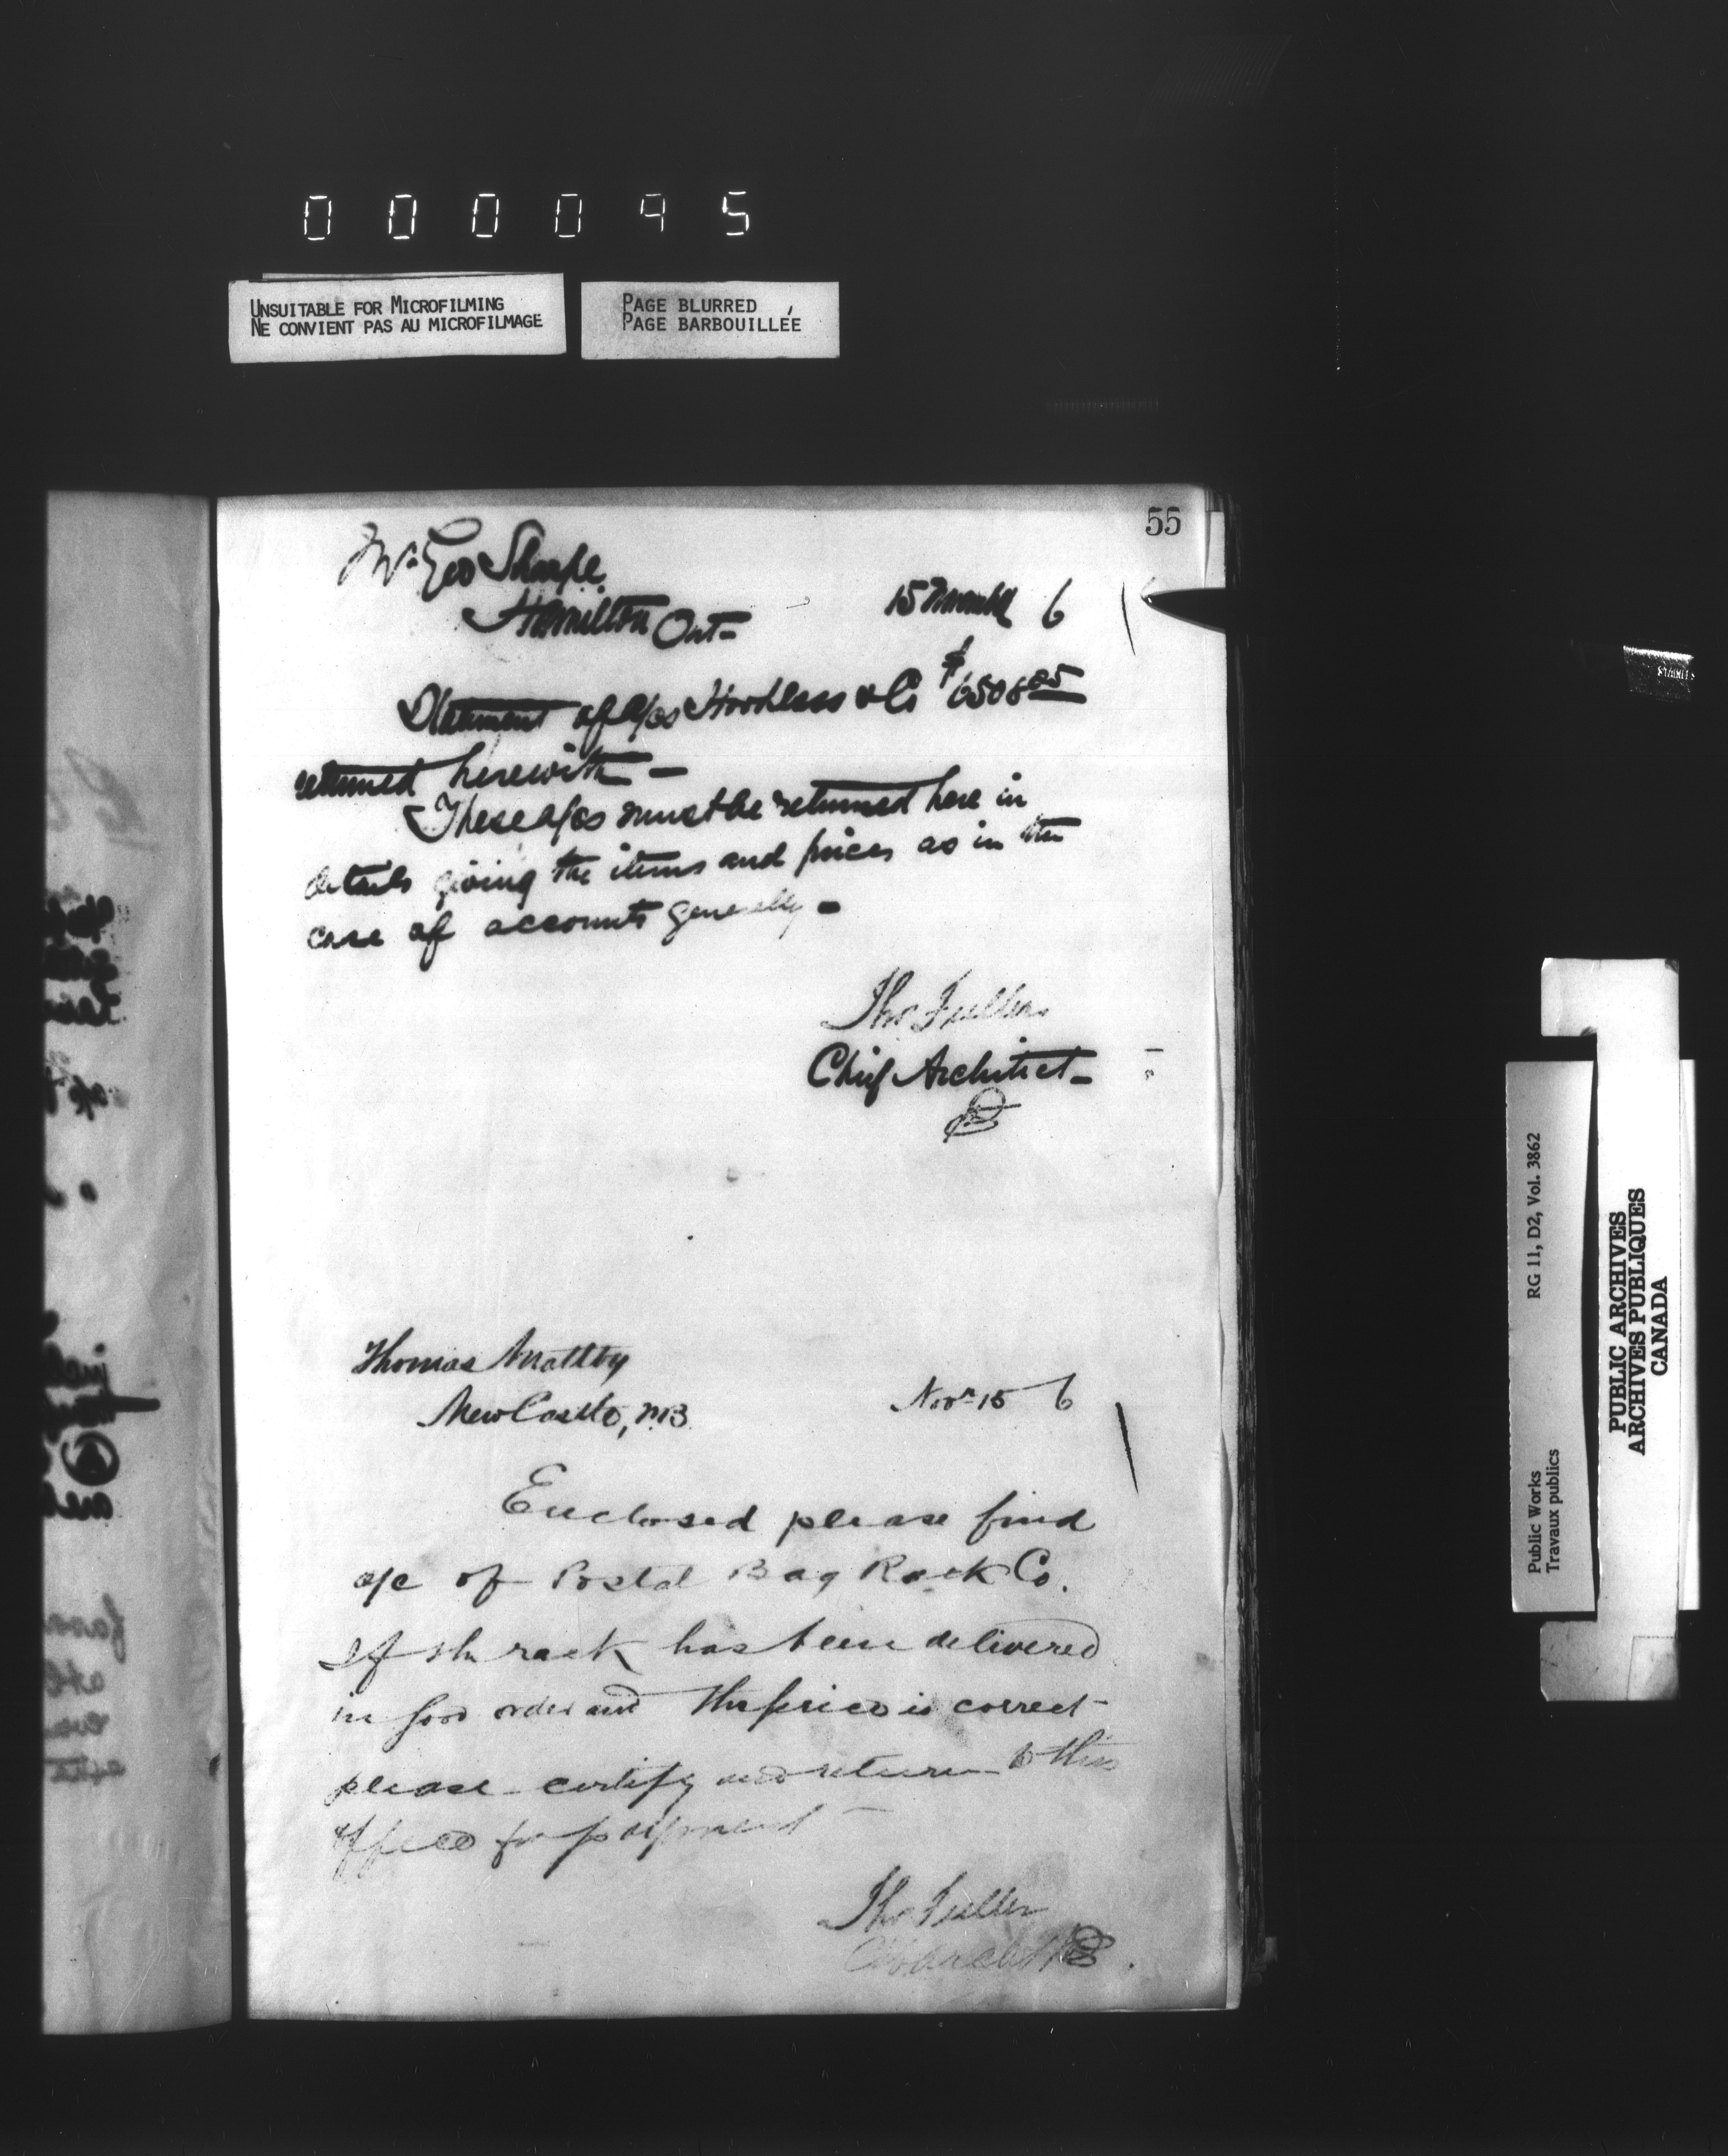 000095
UNSUITABLE FOR MICROFILMING
NE CONVIENT PAS AU MICROFILMAGE
PAGE BLURRED
PAGE BARBOUILLÉE
55
Mr Geo Sharpe
Hamilton Ont-
15 November 6
Statement of a/cs Hoodless & Co
returned herewith -
These a/cs must be returned here in
details giving the items and prices as in the
case of accounts generally -
Thos Fuller
Chief Architect -
Thomas Maltby
New Castle, N.B.
Novr 15 6
Enclosed please find
a/c of Postal Bag Rack Co.
If the rack has been delivered
in good order and the price is correct
please certify and return to this
office for payment
Thos Fuller
Ch Archt
Public Works
Travaux publics
RG 11, D2, Vol. 3862
PUBLIC ARCHIVES
ARCHIVES PUBLIQUES
CANADA